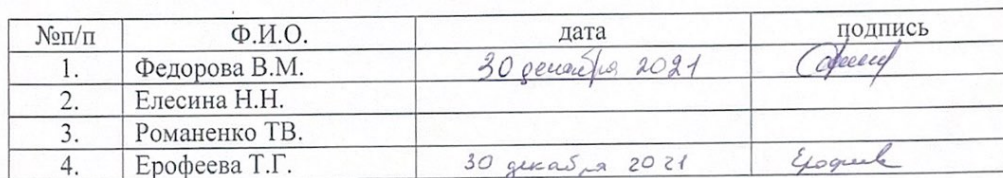 №п/п Ф.И.О. дата подпись
1. Федорова В.М. 30 декабря 2021
2. Елесина Н.Н.
3. Романенко ТВ.
4. Ерофеева Т.Г. 30 декабря 2021